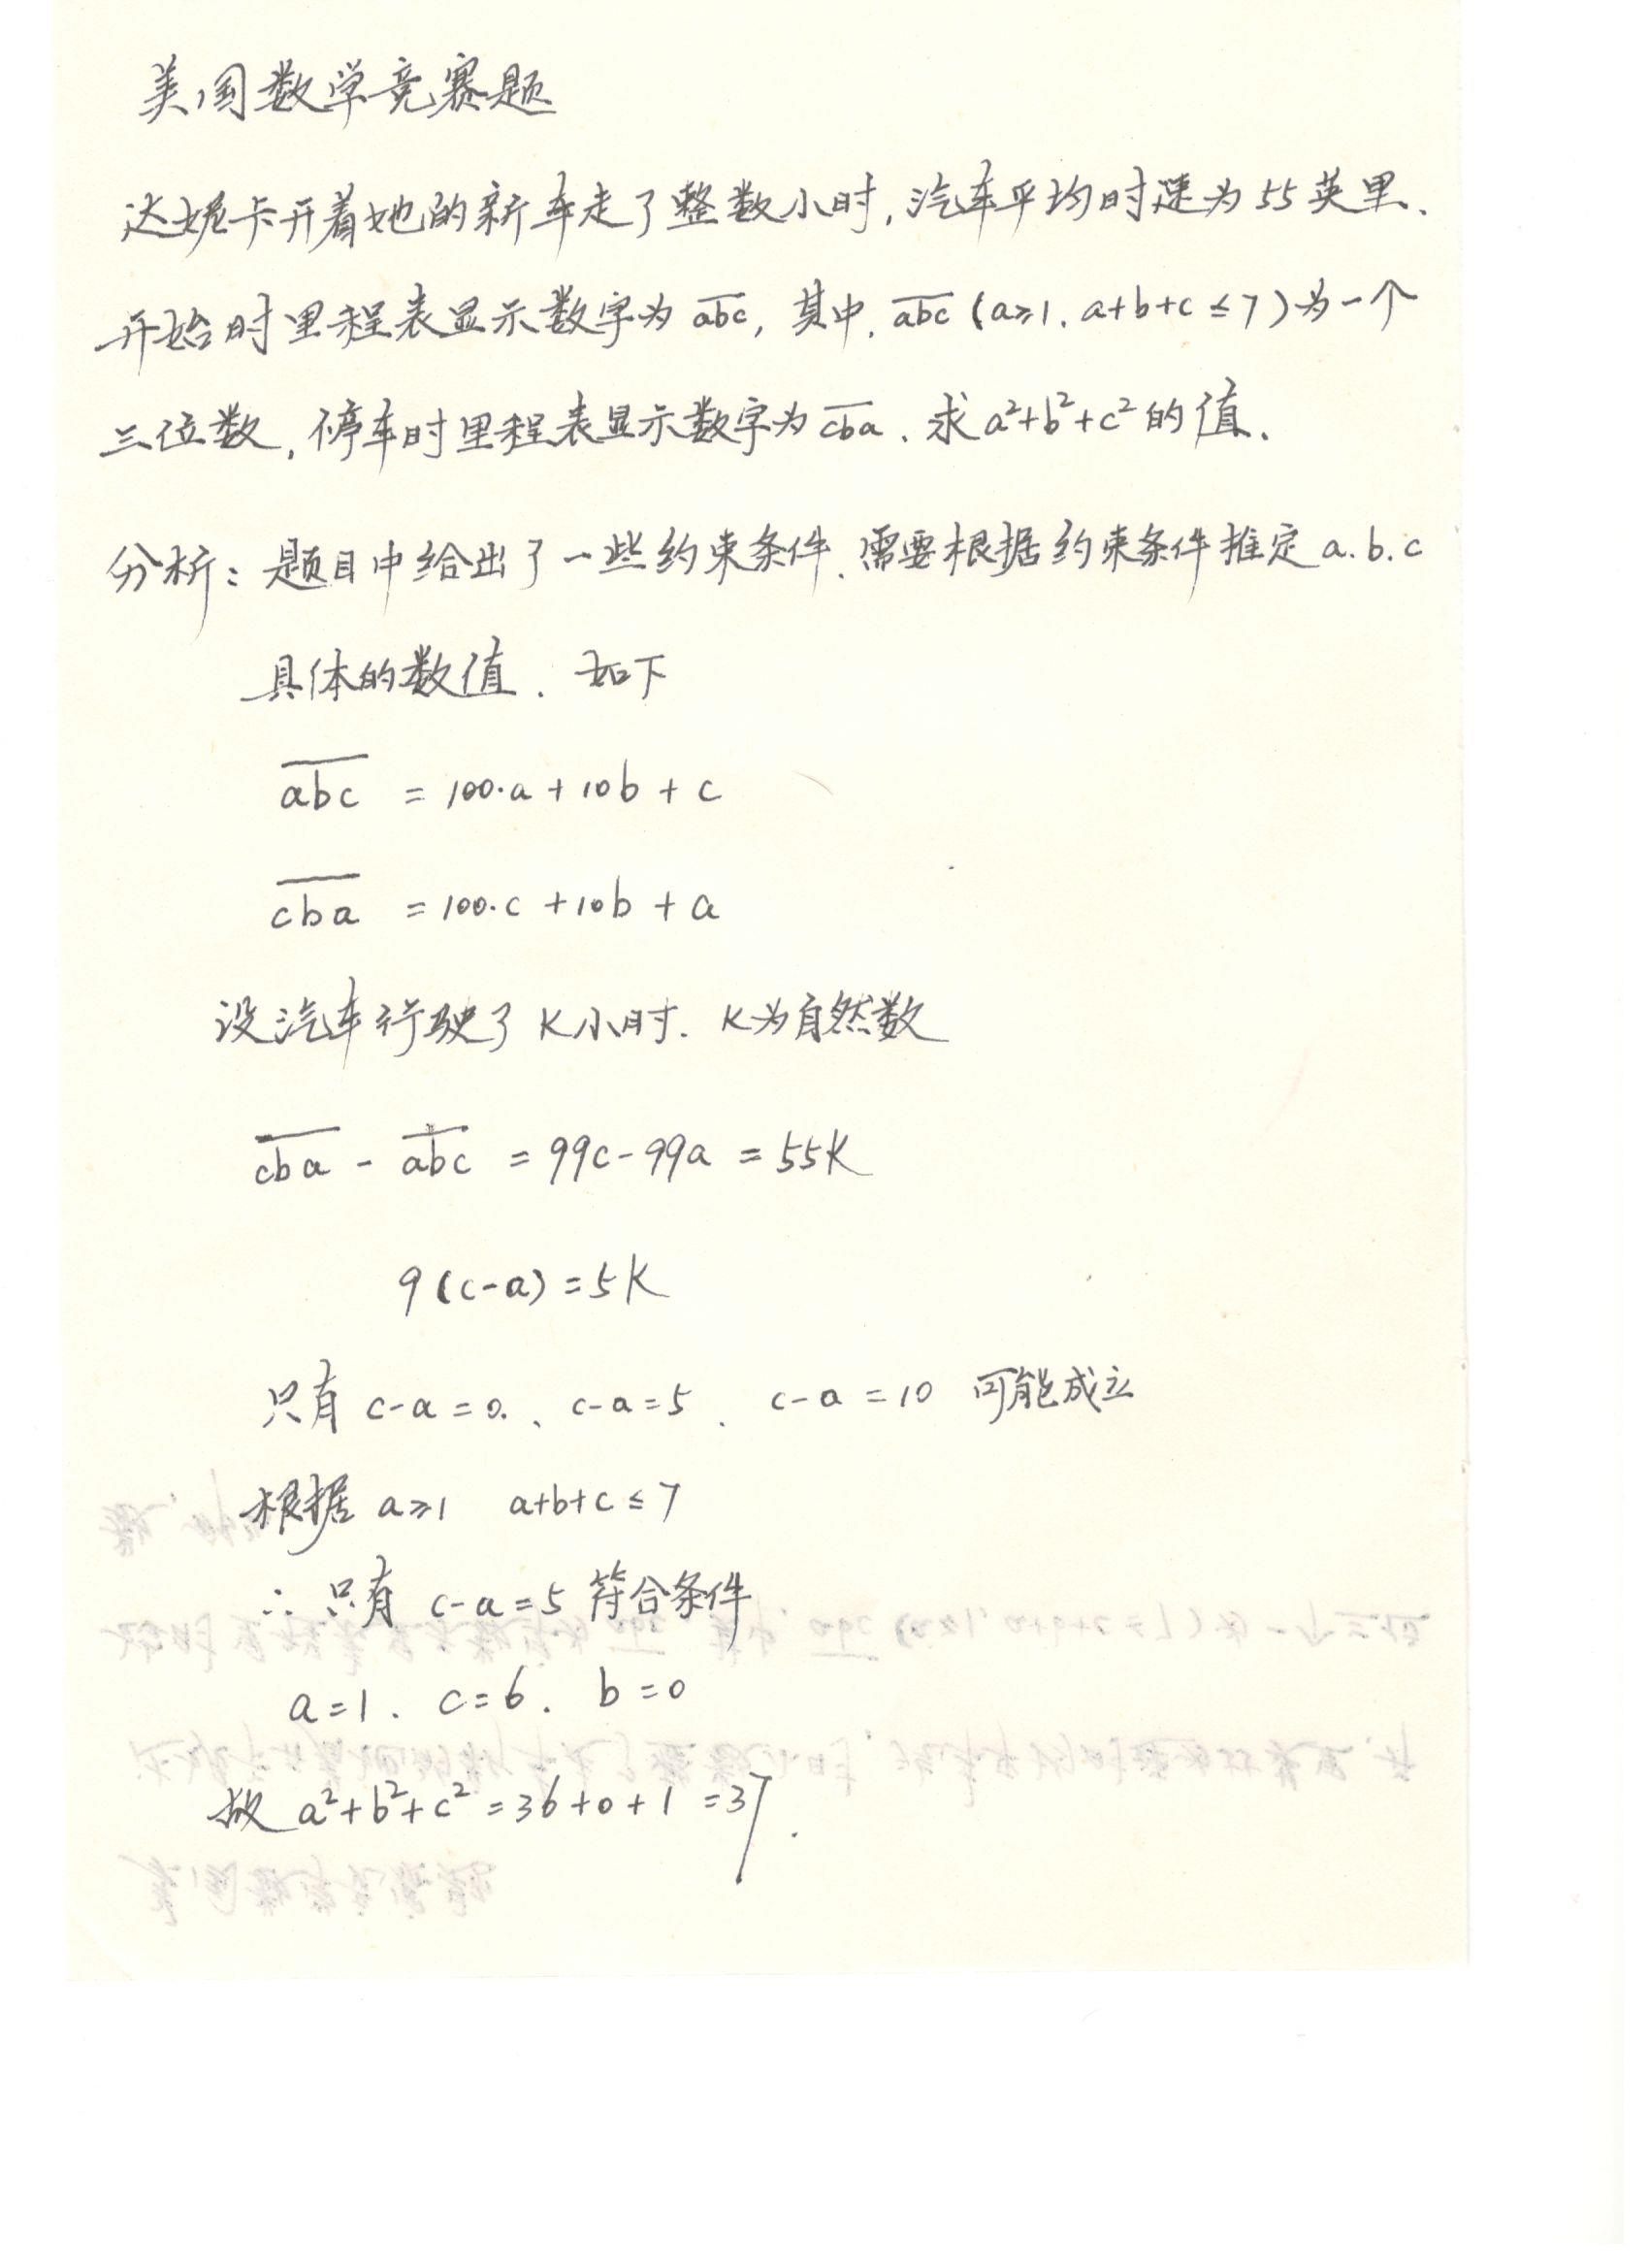 美国数学竞赛题
达妮卡开着她的新车走了整数小时,汽车平均时速为55英里、
开始时里程表显示数字为a̅b̅c̅,其中,a̅b̅c̅(a≥1、a+b+c≤7)为一个
三位数,停车时里程表显示数字为c̅b̅a̅、求a²+b²+c²的值、
分析:题目中给出了一些约束条件、需要根据约束条件推定a.b.c
具体的数值、如下
a̅b̅c̅ = 100·a+10b+c
c̅b̅a̅ = 100·c+10b+a
设汽车行驶了K小时、K为自然数
c̅b̅a̅ - a̅b̅c̅ = 99c-99a = 55K
9(c-a)=5K
只有 c-a=0、c-a=5、c-a=10 可能成立
根据 a≥1 a+b+c≤7
∴只有 c-a=5 符合条件
a=1、c=6、b=0
故 a²+b²+c²=36+0+1=37.